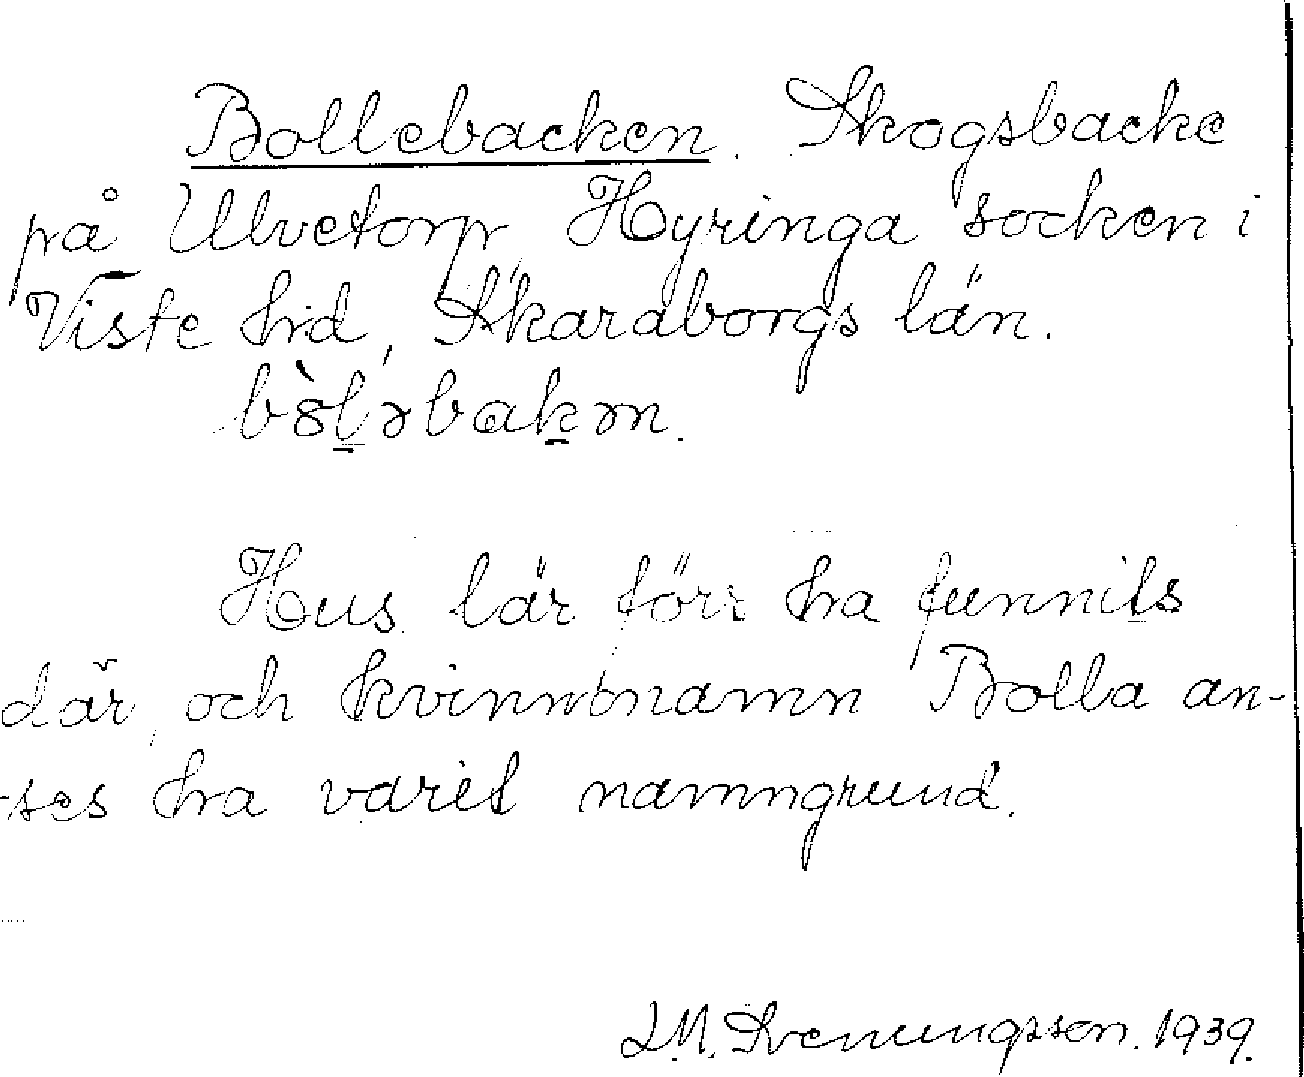 Bollebacken. Skogsbacke
på Ulvetorp, Hyringa socken i
Viste hd, Skaraborgs län.
bòləbakən.
Hus lär förr ha funnits
där, och kvinnonamn Bolla an-
-ses ha varit namngrund.
L.M. Svenungsson. 1939.